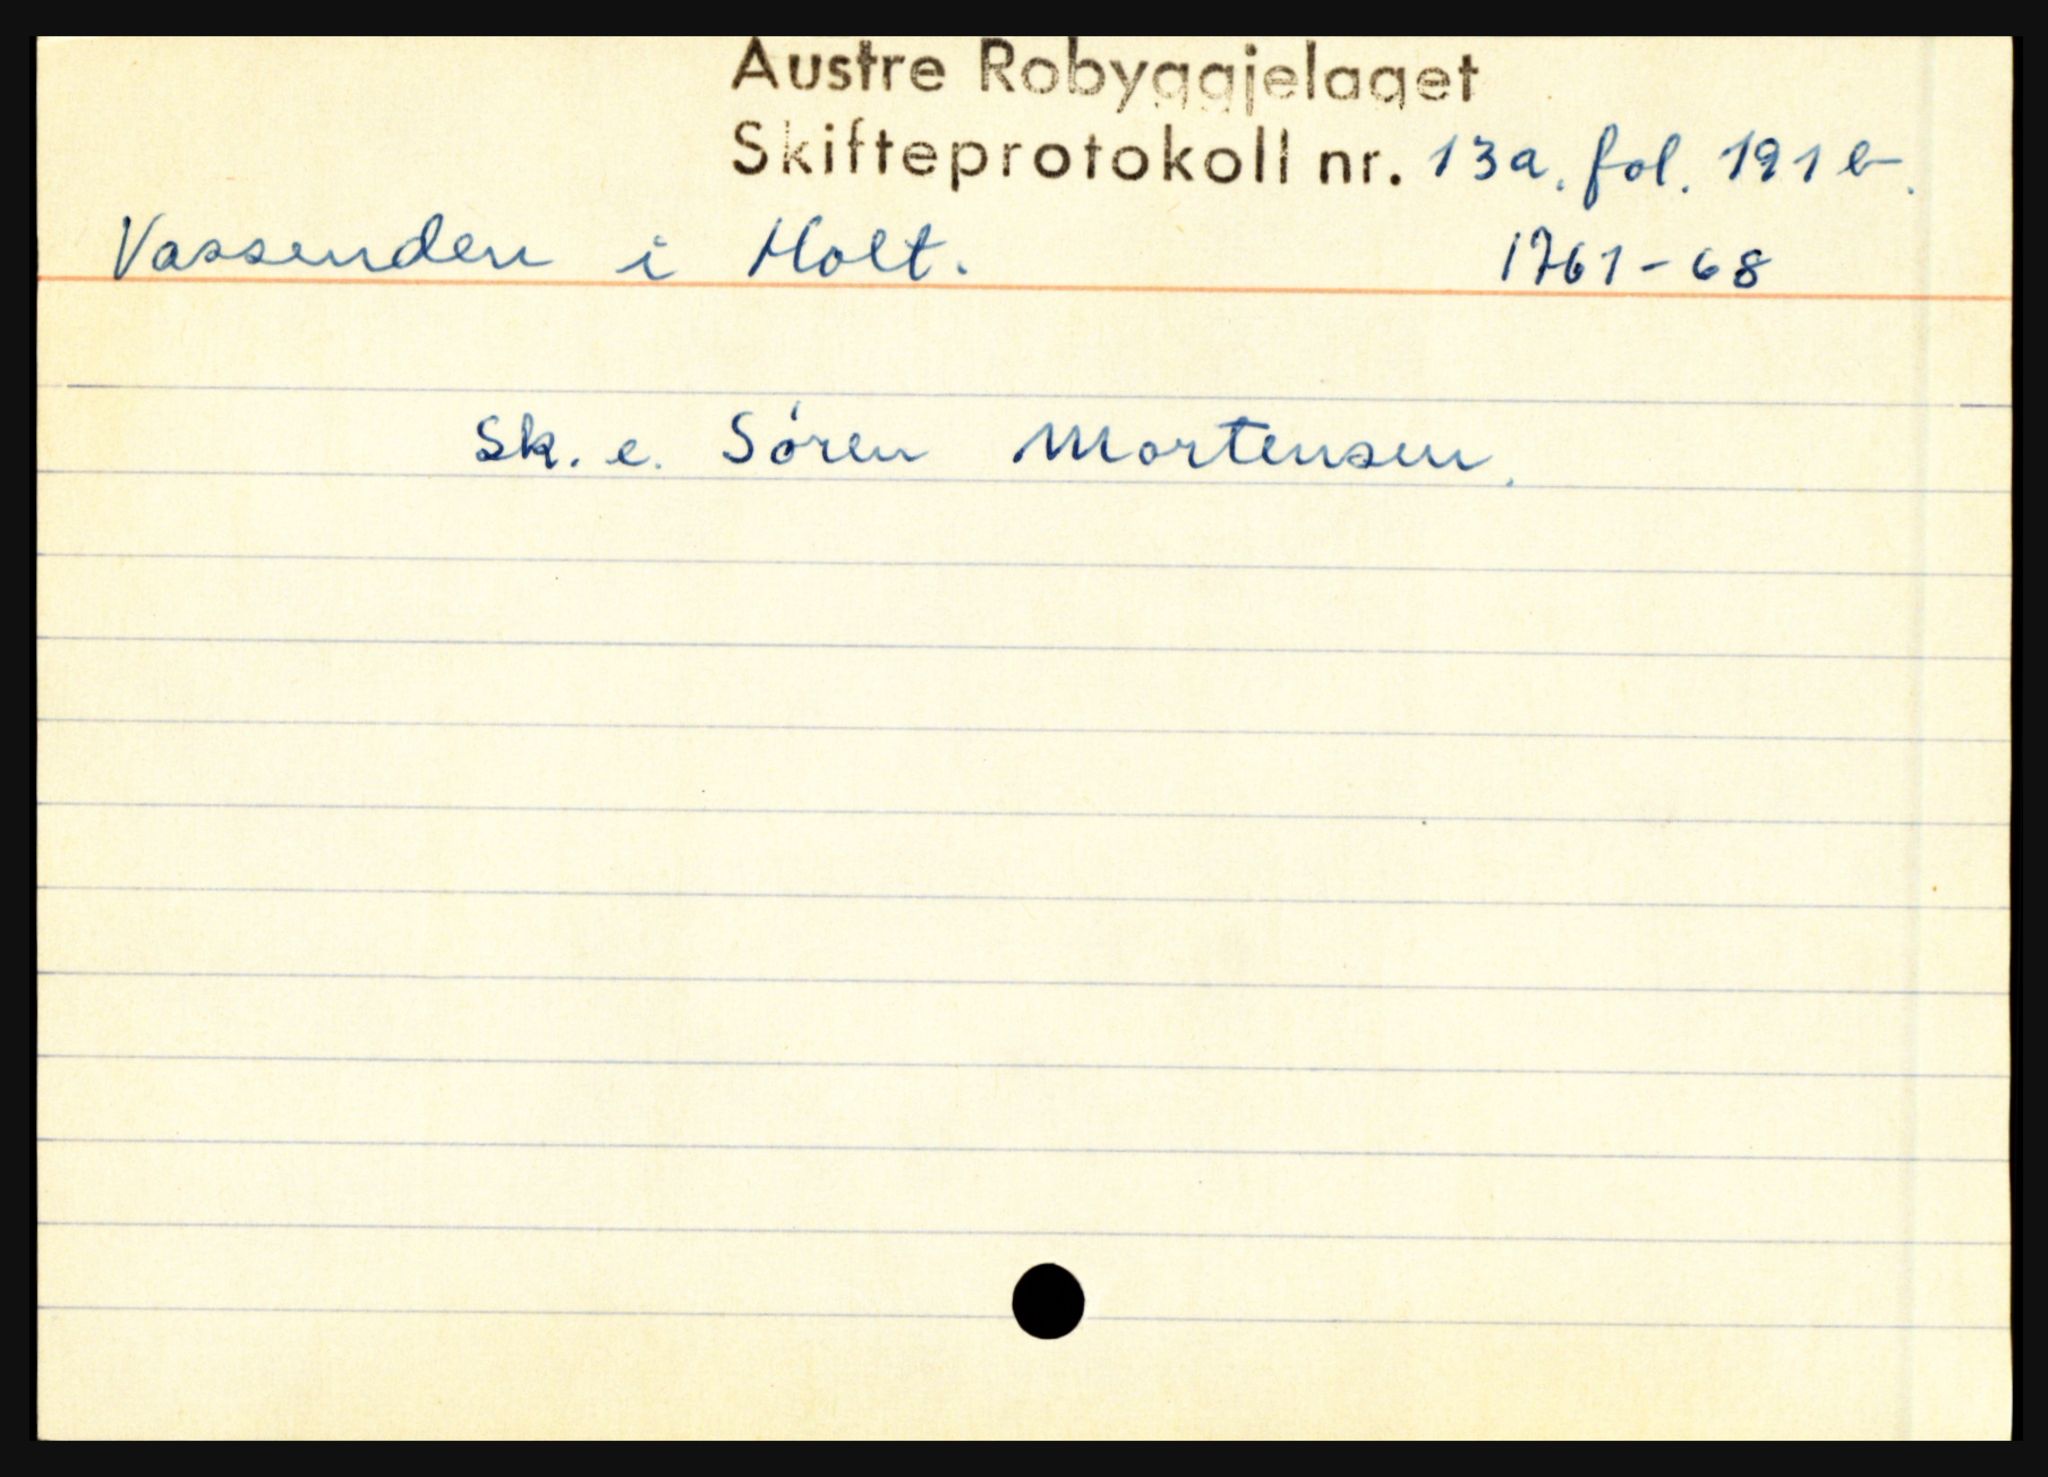 Austre Robyggjelaget
Skifteprotokoll nr. 13a. fol. 191b.
Vassenden i Holt. 1761-68
Sk. e. Sóren Mortensen.